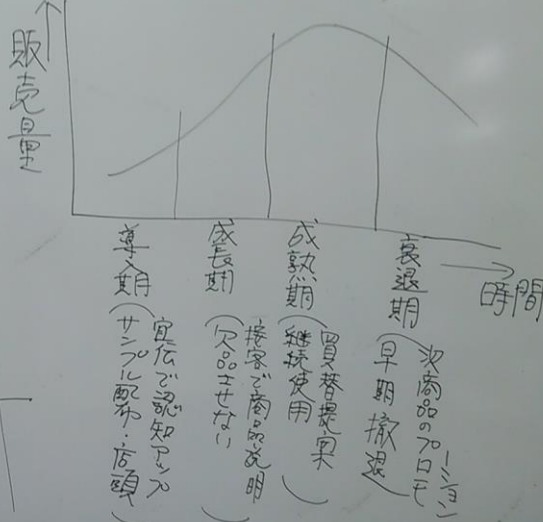 販売量
導入期
宣伝で認知アップ
サンプル配布・店頭
成長期
接客で商品説明
欠品させない
成熟期
買替提案
継続使用
衰退期
次商品のプロモーション
早期撤退
時間